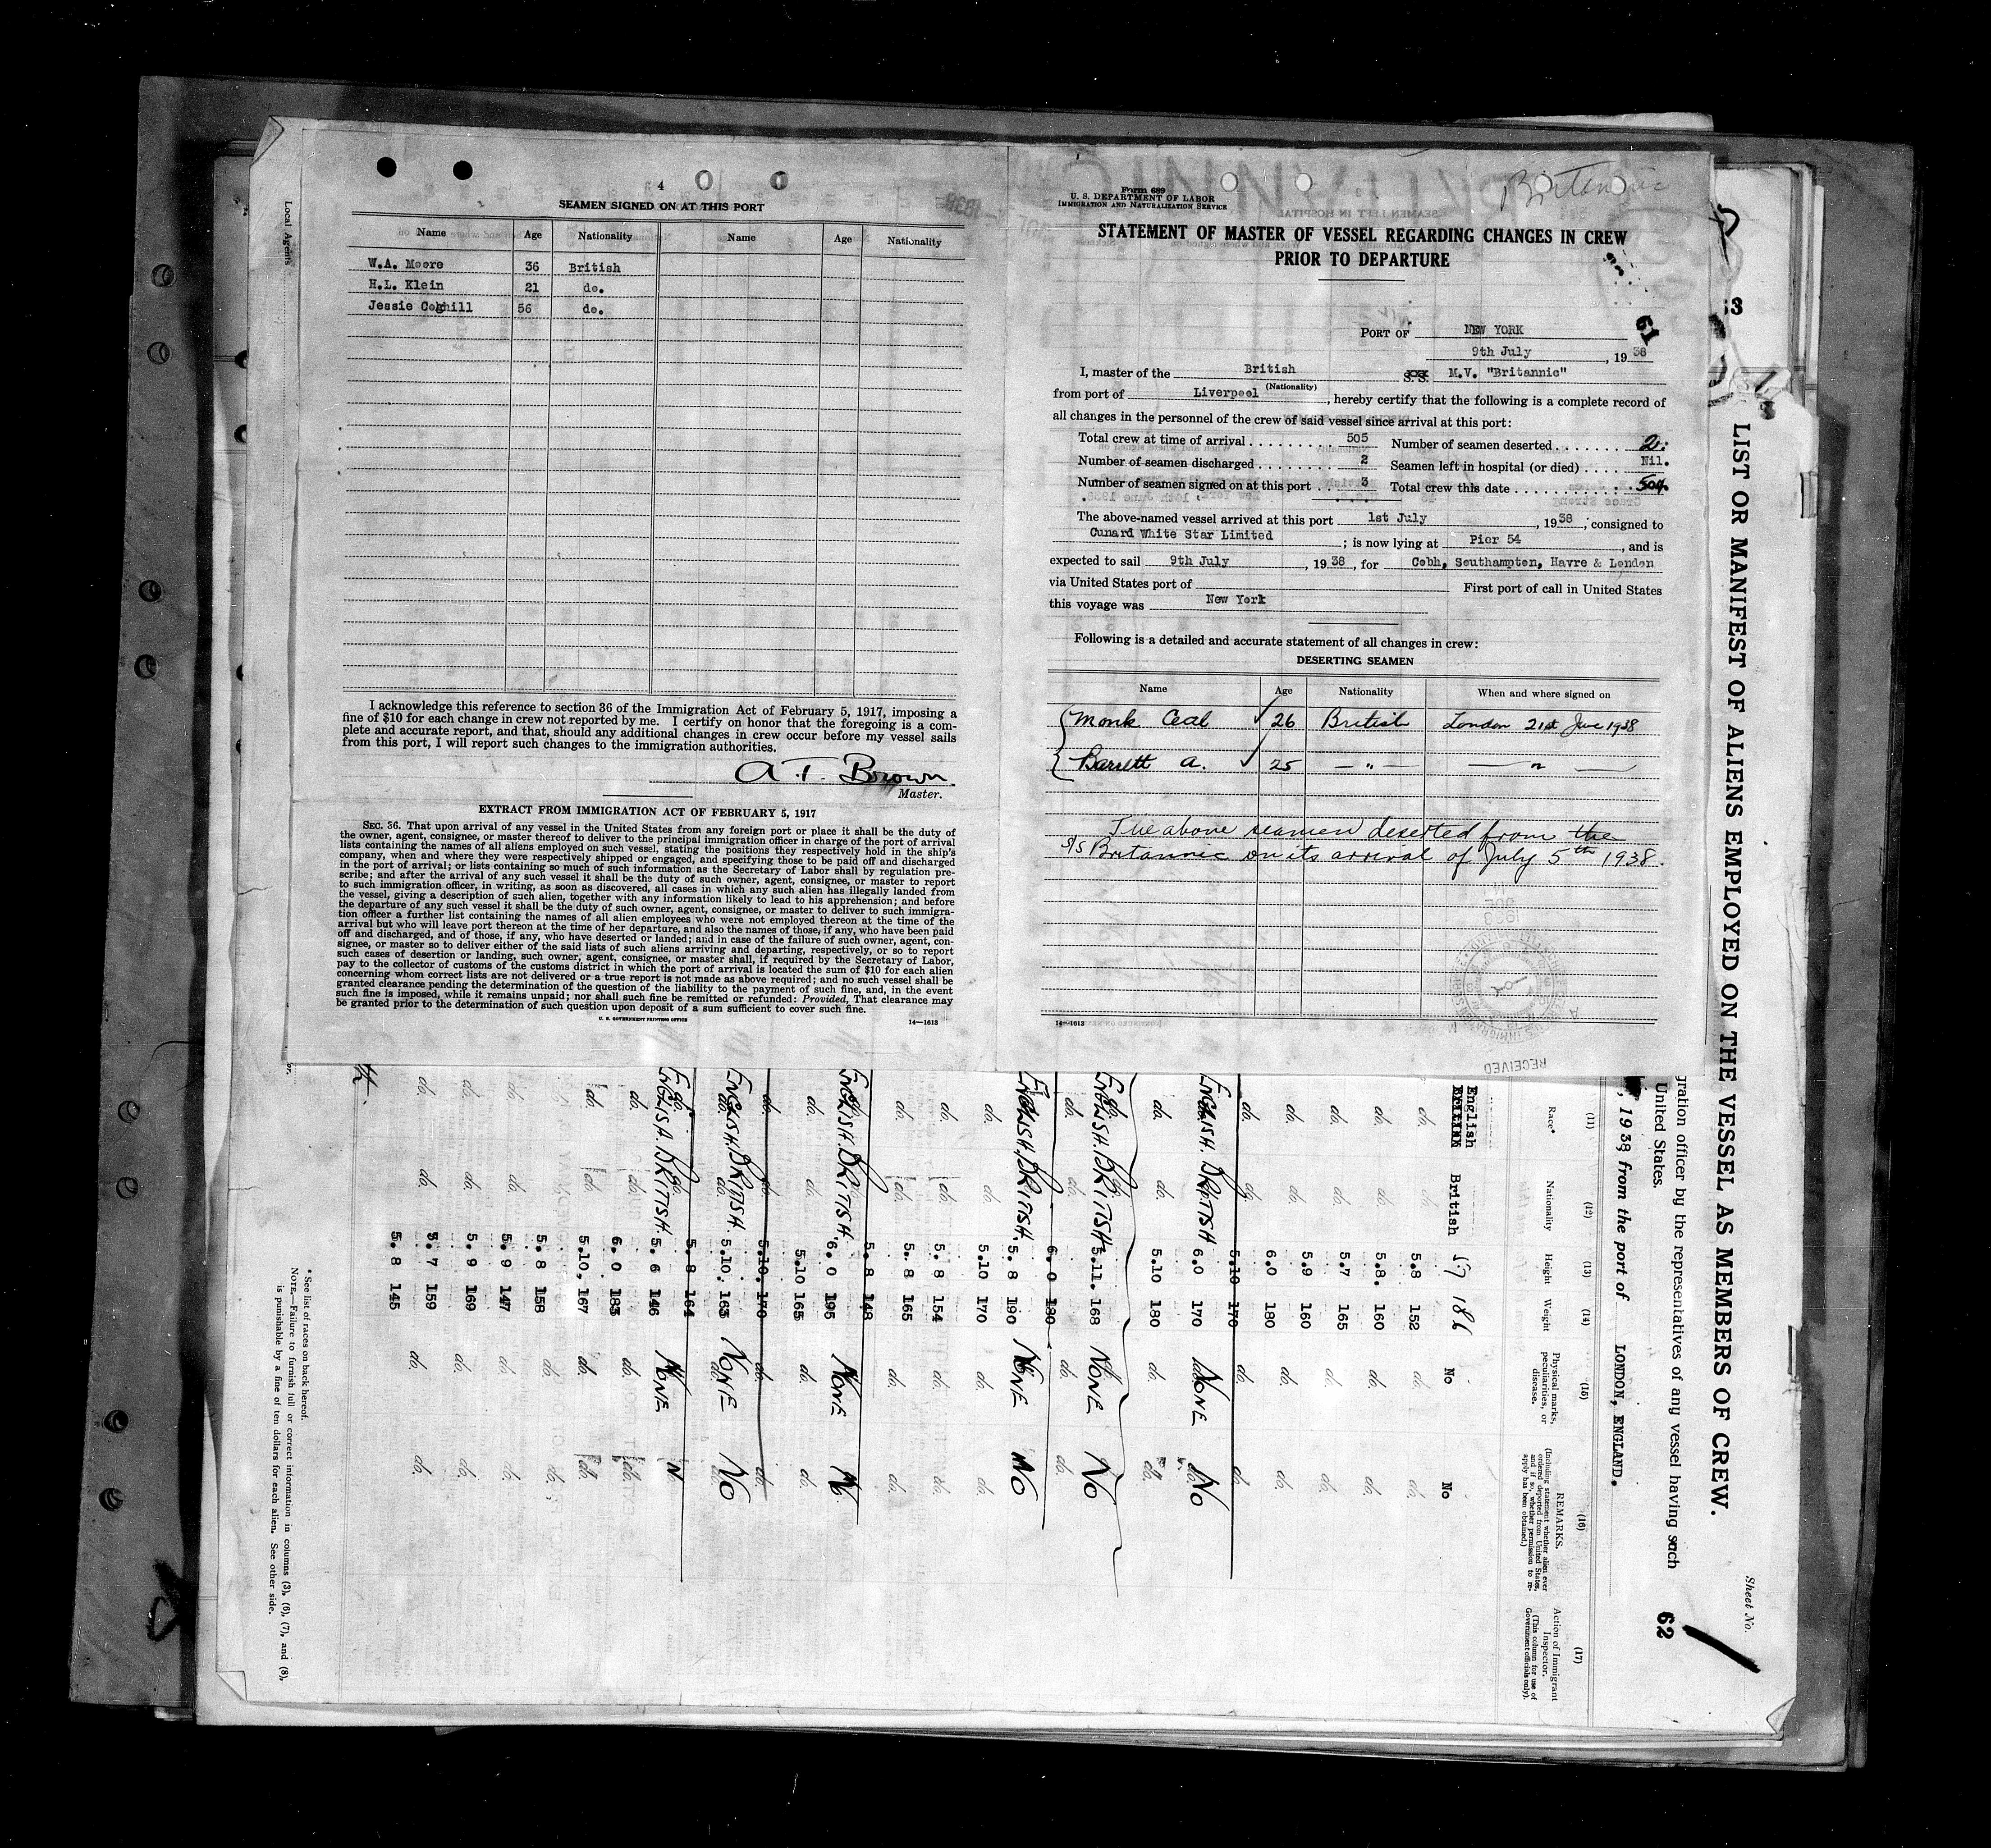 4
SEAMEN SIGNED ON AT THIS PORT
Name Age Nationality Name Age Nationality
W.A. Moore 36 British
H.L. Klein 21 do.
Jessie Coghill 56 do.
I acknowledge this reference to section 36 of the Immigration Act of February 5, 1917, imposing a
fine of $10 for each change in crew not reported by me. I certify on honor that the foregoing is a com-
plete and accurate report, and that, should any additional changes in crew occur before my vessel sails
from this port, I will report such changes to the immigration authorities.
A. T. Brown
Master.
EXTRACT FROM IMMIGRATION ACT OF FEBRUARY 5, 1917
SEC. 36. That upon arrival of any vessel in the United States from any foreign port or place it shall be the duty of
the owner, agent, consignee, or master thereof to deliver to the principal immigration officer in charge of the port of arrival
lists containing the names of all aliens employed on such vessel, stating the positions they respectively hold in the ship's
company, when and where they were respectively shipped or engaged, and specifying those to be paid off and discharged
in the port of arrival; or lists containing so much of such information as the Secretary of Labor shall by regulation pre-
scribe; and after the arrival of any such vessel it shall be the duty of such owner, agent, consignee, or master to report
to such immigration officer, in writing, as soon as discovered, all cases in which any such alien has illegally landed from
the vessel, giving a description of such alien, together with any information likely to lead to his apprehension; and before
the departure of any such vessel it shall be the duty of such owner, agent, consignee, or master to deliver to such immigra-
tion officer a further list containing the names of all alien employees who were not employed thereon at the time of the
arrival but who will leave port thereon at the time of her departure, and also the names of those, if any, who have been paid
off and discharged, and of those, if any, who have deserted or landed; and in case of the failure of such owner, agent, con-
signee, or master so to deliver either of the said lists of such aliens arriving and departing, respectively, or so to report
such cases of desertion or landing, such owner, agent, consignee, or master shall, if required by the Secretary of Labor,
pay to the collector of customs of the customs district in which the port of arrival is located the sum of $10 for each alien
concerning whom correct lists are not delivered or a true report is not made as above required; and no such vessel shall be
granted clearance pending the determination of the question of the liability to the payment of such fine, and, in the event
such fine is imposed, while it remains unpaid; nor shall such fine be remitted or refunded: Provided, That clearance may
be granted prior to the determination of such question upon deposit of a sum sufficient to cover such fine.
U. S. GOVERNMENT PRINTING OFFICE 14—1613
Local Agents
Form 689
U. S. DEPARTMENT OF LABOR
IMMIGRATION AND NATURALIZATION SERVICE
Britannic
STATEMENT OF MASTER OF VESSEL REGARDING CHANGES IN CREW
PRIOR TO DEPARTURE
61
PORT OF NEW YORK
9th July, 1938
I, master of the British S.S. M.V. "Britannic"
(Nationality)
from port of Liverpool, hereby certify that the following is a complete record of
all changes in the personnel of the crew of said vessel since arrival at this port:
Total crew at time of arrival 505 Number of seamen deserted 2.
Number of seamen discharged 2 Seamen left in hospital (or died) Nil.
Number of seamen signed on at this port 3 Total crew this date 504.
The above-named vessel arrived at this port 1st July, 1938, consigned to
Cunard White Star Limited; is now lying at Pier 54, and is
expected to sail 9th July, 1938, for Cobh, Southampton, Havre & London
via United States port of First port of call in United States
this voyage was New York
Following is a detailed and accurate statement of all changes in crew:
DESERTING SEAMEN
Name Age Nationality When and where signed on
Monk Ceal 26 British London 21st June 1938
Barrett A. 25 — " — — " —
The above seamen deserted from the
S/S Britannic on its arrival of July 5th 1938.
14—1613
RECEIVED
LIST OR MANIFEST OF ALIENS EMPLOYED ON THE VESSEL AS MEMBERS OF CREW.
Sheet No.
62
gration officer by the representatives of any vessel having such
United States.
, 1938, from the port of LONDON, ENGLAND.
(11) (12) (13) (14) (15) (16) (17)
Race* Nationality Height Weight Physical marks, peculiarities, or disease. REMARKS. (Including statement whether alien ever ordered deported from United States, and if so, whether permission to re-apply has been obtained.) Action of Immigrant Inspector. (This column for use of Government officials only).
English British 5.7 186 No No
do. do. 5.8 152 do. do.
do. do. 5.8. 160 do. do.
do. do. 5.7 165 do. do.
do. do. 5.9 160 do. do.
do. do. 6.0 180 do. do.
do. do. 5.10 170 do. do.
ENGLISH. BRITISH 6.0 170 NONE NO
do. do. 5.10 180 do. do.
ENGLISH. BRITISH. 5.11. 168 NONE NO
do. do. 6. 0 180 do. do.
ENGLISH. BRITISH. 5. 8 190 NONE NO
do. do. 5.10 170 do. do.
do. do. 5. 8 154 do. do.
do. do. 5. 8 165 do. do.
5. 8 148
ENGLISH. BRITISH. 6. 0 195 NONE N
do. do. 5.10 165 do. do.
do. do. 5.10. 170 do. do.
ENGLISH. BRITISH. 5.10. 163 NONE NO
5. 8 164
ENGLISH. BRITISH. 5. 6 146 NONE N
do. do. 6. 0 183 do. do.
do. do. 5.10. 167 do. do.
5. 8 158 do. do.
do. do. 5. 9 147 do. do.
do. do. 5. 9 169 do. do.
do. do. 5. 7 159 do. do.
5. 8 145
* See list of races on back hereof.
NOTE.—Failure to furnish full or correct information in columns (3), (6), (7), and (8),
is punishable by a fine of ten dollars for each alien. See other side.